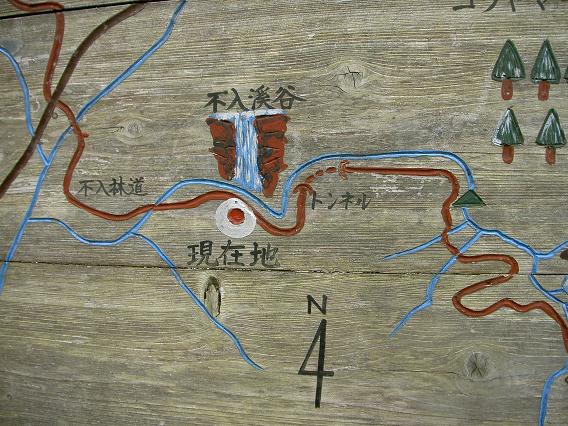 不入渓谷
不入林道
トンネル
現在地
N